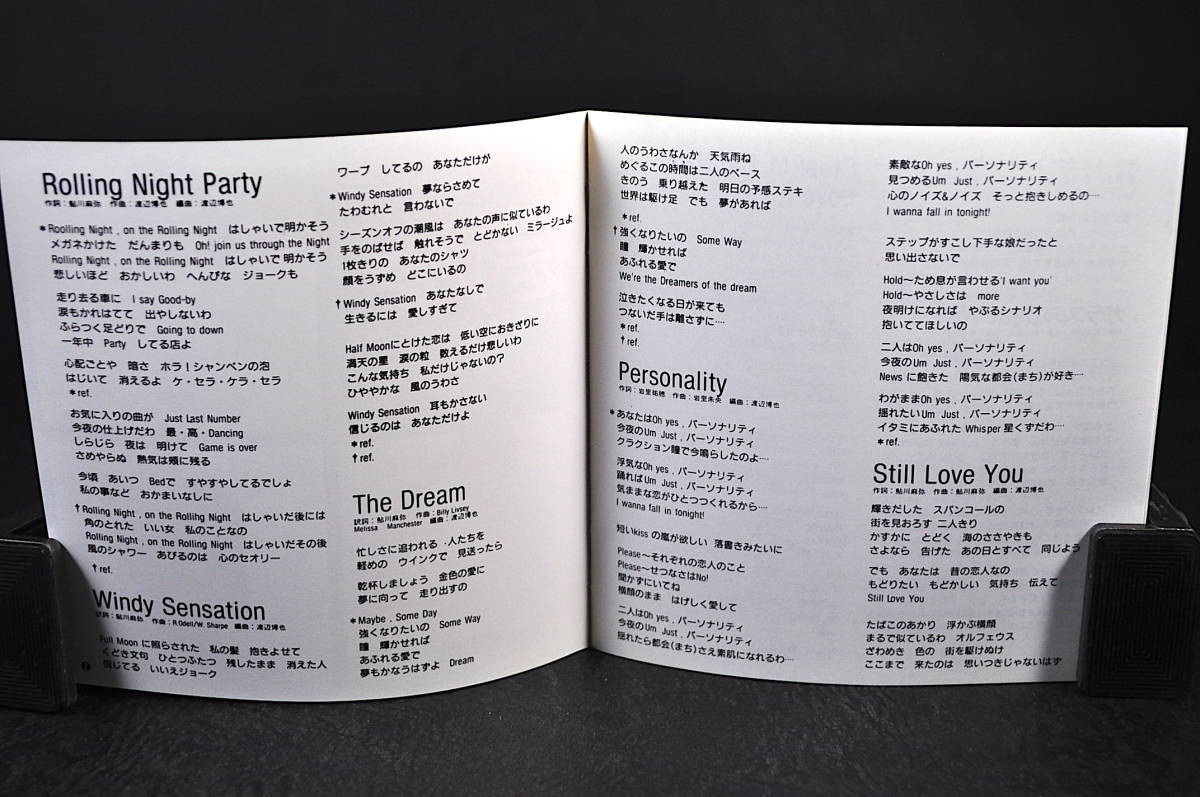 Rolling Night Party
作詞：鮎川麻弥 作曲：渡辺博也 編曲：渡辺博也
*Roolling Night , on the Rolling Night はしゃいで明かそう
メガネかけた だんまりも Oh! join us through the Night
Rolling Night , on the Rolling Night はしゃいで明かそう
悲しいほど おかしいわ へんぴな ジョークも
走り去る車に I say Good-by
涙もかれはてて 出やしないわ
ふらつく足どりで Going to down
一年中 Party してる店よ
心配ごとや 暗さ ホラ！シャンペンの泡
はじいて 消えるよ ケ・セラ・ケラ・セラ
*ref.
お気に入りの曲が Just Last Number
今夜の仕上げだわ 最・高・Dancing
しらじら 夜は 明けて Game is over
さめやらぬ 熱気は頬に残る
今頃 あいつ Bedで すやすやしてるでしょ
私の事など おかまいなしに
†Rolling Night , on the Rollihg Night はしゃいだ後には
角のとれた いい女 私のことなの
Rolling Night , on the Rolling Night はしゃいだその後
風のシャワー あびるのは 心のセオリー
†ref.
Windy Sensation
訳詞：鮎川麻弥 作曲：R.Odell/W. Sharpe 編曲：渡辺博也
Full Moon に照らされた 私の髪 抱きよせて
くどき文句 ひとつふたつ 残したまま 消えた人
信じてる いいえジョーク
2
ワープ してるの あなただけが
*Windy Sensation 夢ならさめて
たわむれと 言わないで
シーズンオフの潮風は あなたの声に似ているわ
手をのばせば 触れそうで とどかない ミラージュよ
1枚きりの あなたのシャツ
顔をうずめ どこにいるの
†Windy Sensation あなたなしで
生きるには 愛しすぎて
Half Moonにとけた恋は 低い空におきざりに
満天の星 涙の粒 数えるだけ悲しいわ
こんな気持ち 私だけじゃないの？
ひややかな 風のうわさ
Windy Sensation 耳もかさない
信じるのは あなただけよ
*ref.
†ref.
The Dream
訳詞：鮎川麻弥 作曲：Billy Livsey
Melissa Manchester 編曲：渡辺博也
忙しさに追われる 人たちを
軽めの ウインクで 見送ったら
乾杯しましょう 金色の愛に
夢に向って 走り出すの
*Maybe , Some Day
強くなりたいの Some Way
瞳 輝かせれば
あふれる愛で
夢もかなうはずよ Dream
人のうわさなんか 天気雨ね
めぐるこの時間は二人のペース
きのう 乗り越えた 明日の予感ステキ
世界は駆け足 でも 夢があれば
*ref.
†強くなりたいの Some Way
瞳 輝かせれば
あふれる愛で
We're the Dreamers of the dream
泣きたくなる日が来ても
つないだ手は離さずに‥‥
*ref.
†ref.
Personality
作詞：岩里祐穂 作曲：岩里未央 編曲：渡辺博也
*あなたはOh yes , パーソナリティ
今夜のUm Just , パーソナリティ
クラクション瞳で今鳴らしたのよ‥‥
浮気なOh yes , パーソナリティ
踊ればUm Just , パーソナリティ
気ままな恋がひとつつくれるから‥‥
I wanna fall in tonight!
短いkiss の嵐が欲しい 落書きみたいに
Please〜それぞれの恋人のこと
Please〜せつなさはNo!
聞かずにいてね
横顔のまま はげしく愛して
二人はOh yes , パーソナリティ
今夜のUm Just , パーソナリティ
揺れたら都会(まち)さえ素肌になれるわ‥‥
素敵なOh yes , パーソナリティ
見つめるUm Just , パーソナリティ
心のノイズ&ノイズ そっと抱きしめるの‥‥
I wanna fall in tonight!
ステップがすこし下手な娘だったと
思い出さないで
Hold〜ため息が言わせる'I want you'
Hold〜やさしさは more
夜明けになれば やぶるシナリオ
抱いててほしいの
二人はOh yes , パーソナリティ
今夜のUm Just , パーソナリティ
News に飽きた 陽気な都会(まち)が好き‥‥
わがままOh yes , パーソナリティ
揺れたいUm Just , パーソナリティ
イタミにあふれた Whisper 星くずだわ‥‥
*ref.
Still Love You
作詞：鮎川麻弥 作曲：鮎川麻弥 編曲：渡辺博也
輝きだした スパンコールの
街を見おろす 二人きり
かすかに とどく 海のささやきも
さよなら 告げた あの日とすべて 同じよう
でも あなたは 昔の恋人なの
もどりたい もどかしい 気持ち 伝えて
Still Love You
たばこのあかり 浮かぶ横顔
まるで似ているわ オルフェウス
ざわめき 色の 街を駆けぬけ
ここまで 来たのは 思いつきじゃないはず